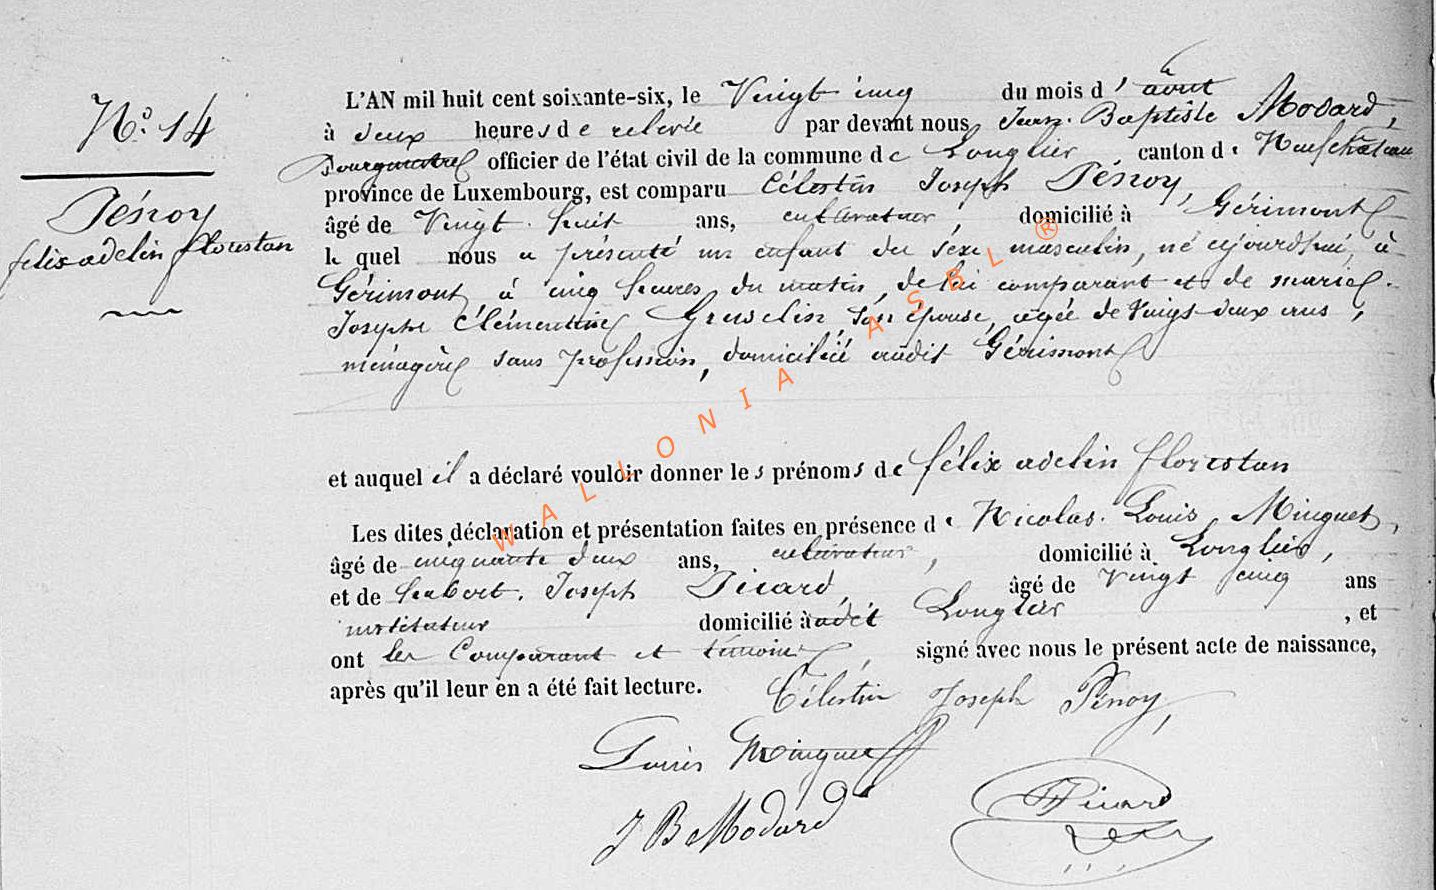 N.° 14
Pénoy
felix adelin floristan
L'AN mil huit cent soixante-six, le Vingt cinq du mois d'août
à deux heures de relevée par devant nous Jean-Baptiste Modard,
Bourgmestre officier de l'état civil de la commune de Longlier, canton de Neufchateau
province de Luxembourg, est comparu Célestin Joseph Pénoy,
âgé de Vingt-huit ans, cultivateur, domicilié à Gérimont
le quel nous a présenté un enfant du sexe masculin, né aujourd'hui, à
Gérimont, à cinq heures du matin, de lui comparant et de marie-
Josephe Clémentine Gruselin, son épouse, agée de Vingt-deux ans,
ménagère sans profession, domiciliée audit Gérimont
et auquel il a déclaré vouloir donner les prénoms de félix adelin floristan
Les dites déclaration et présentation faites en présence de Nicolas-Louis Minguet,
âgé de cinquante deux ans, cultivateur, domicilié à Longlier,
et de hubert-Joseph Picard, âgé de vingt cinq ans
instituteur domicilié à udit Longlier, et
ont les Comparant et témoins, signé avec nous le présent acte de naissance,
après qu'il leur en a été fait lecture.
Célestin Joseph Pénoy,
Louis Minguet
J B Modard
Picard
WALLONIA ASBL ®